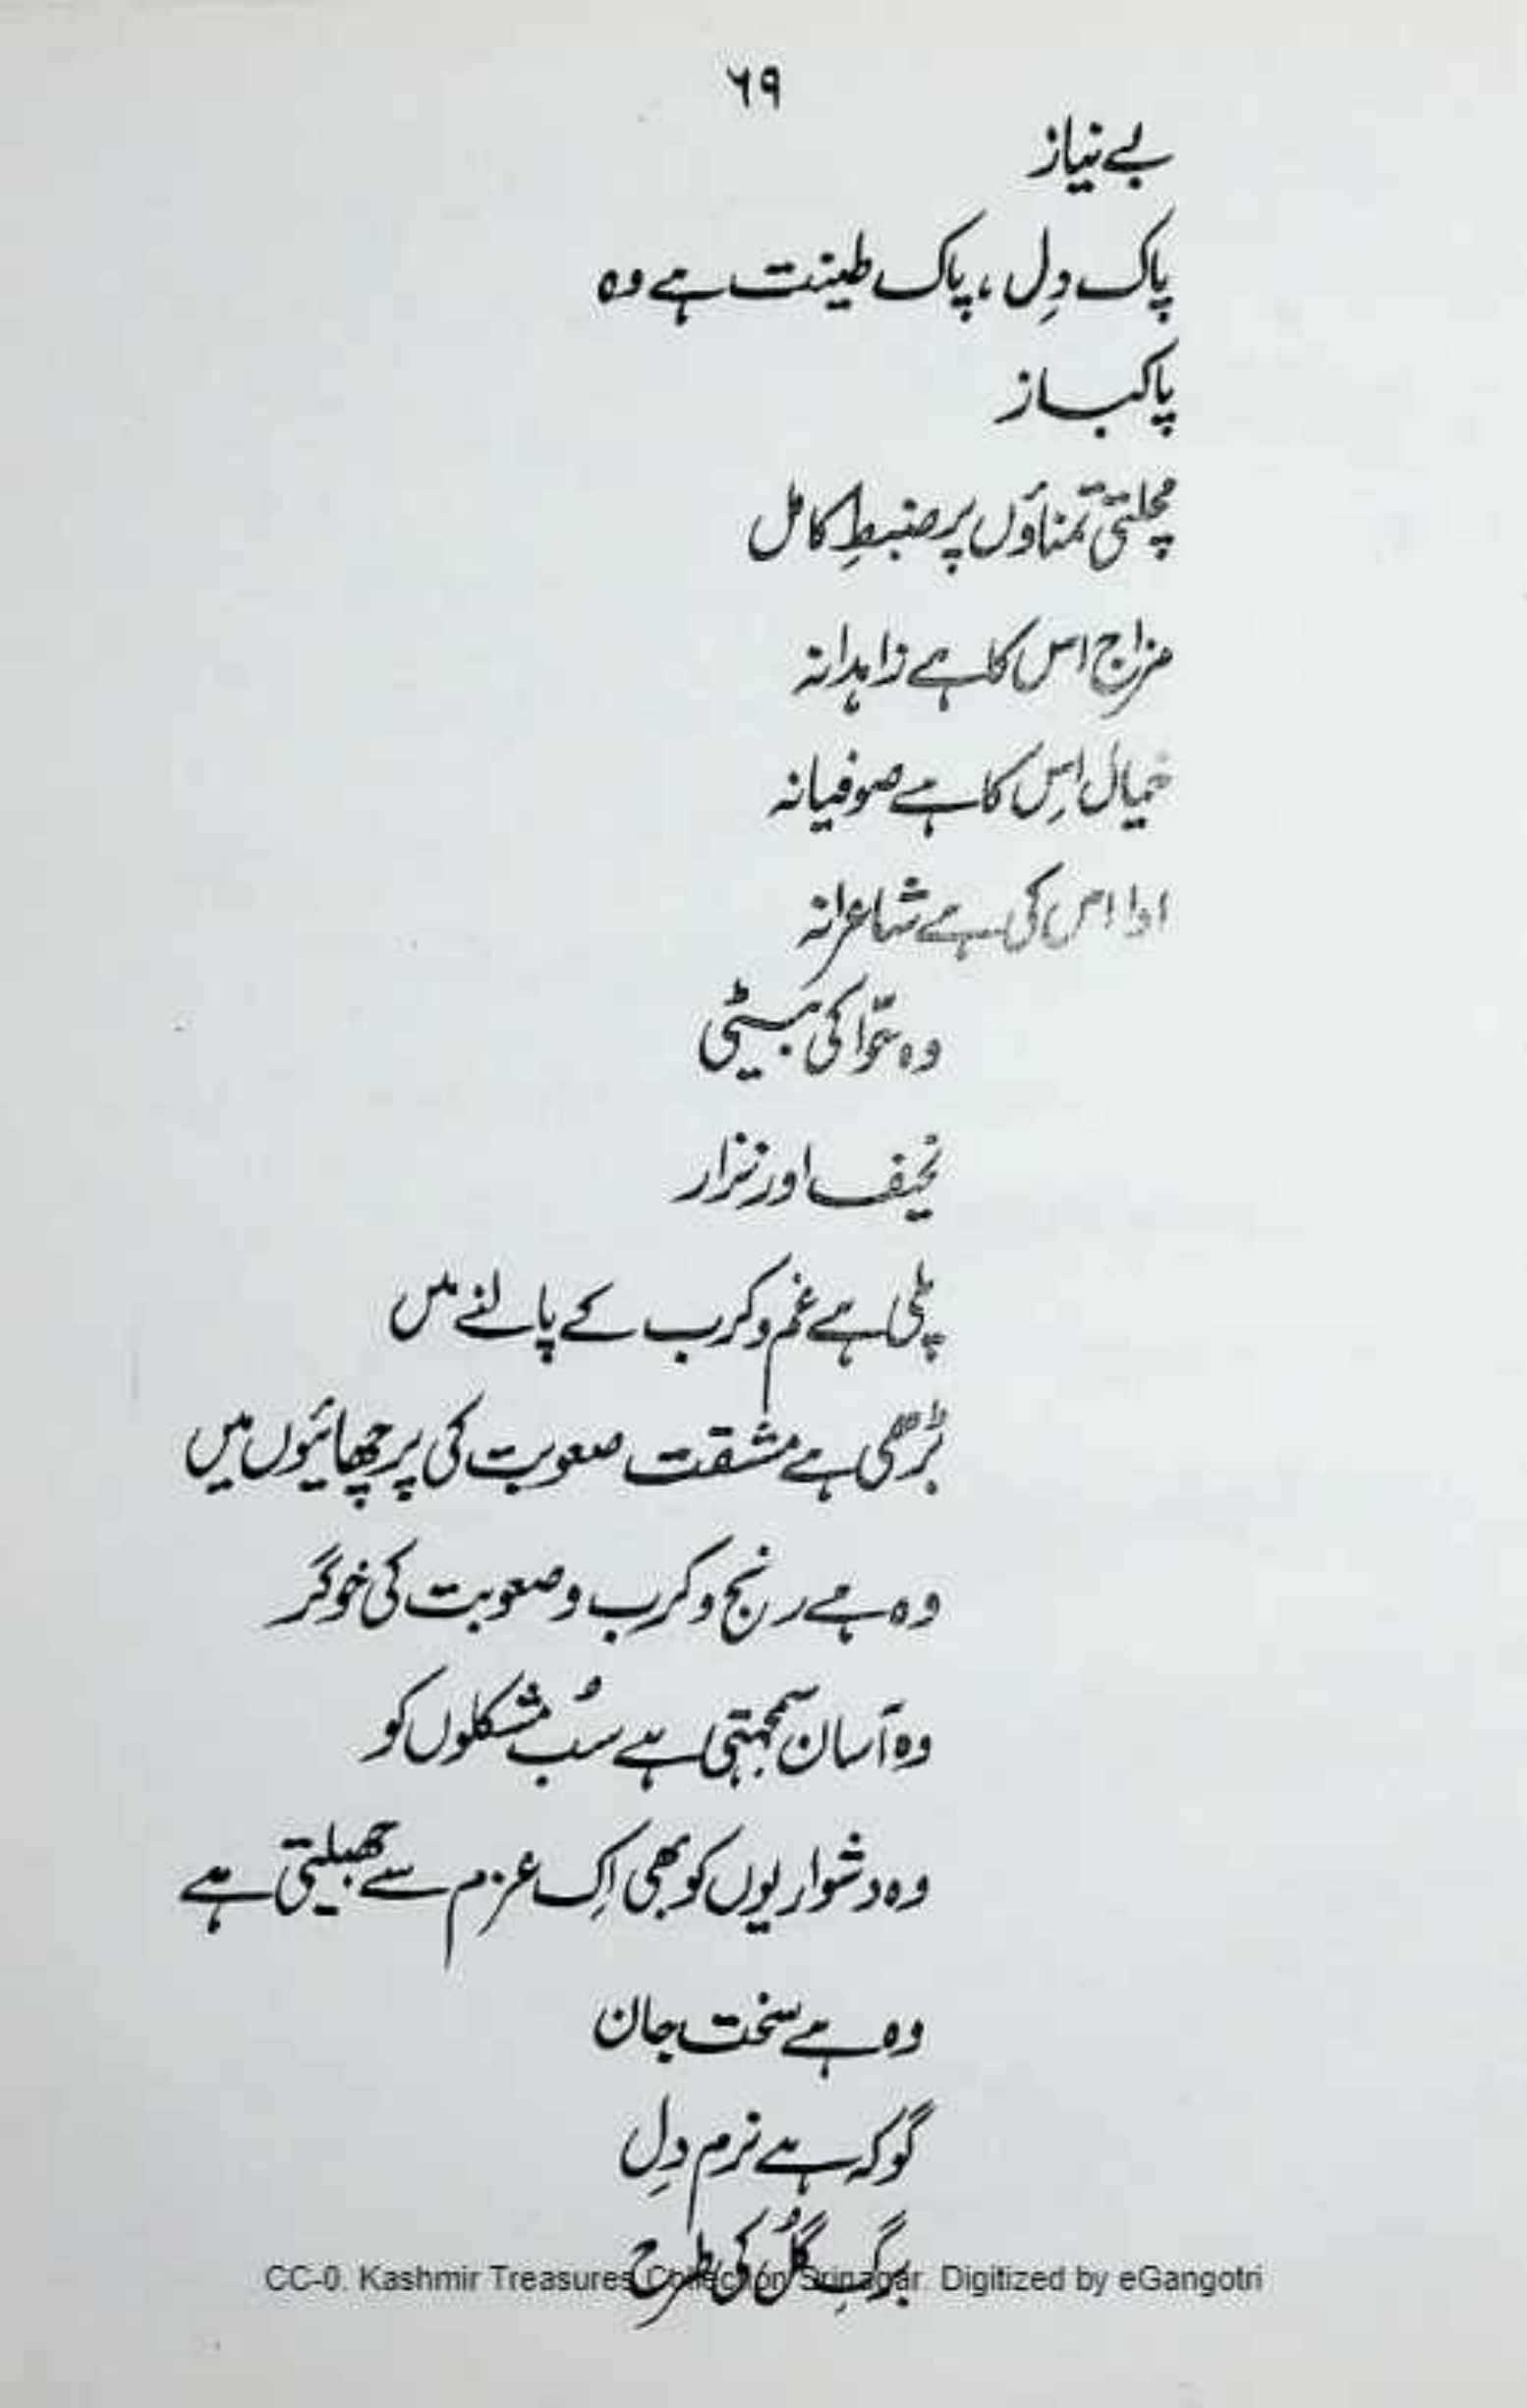 ۶۹
بے نیاز
پاک دِل ، پاک طینت ہے وہ
پاکباز
مچلتی تمناؤں پر ضبطِ کامل
مزاج اس کا ہے زاہدانہ
خیال اِس کا ہے صوفیانہ
ادا اس کی ہے شاعرانہ
وہ حوّا کی بیٹی
نحیف اور نزار
پلی ہے غم و کرب کے پالنے میں
بڑھی ہے مشقت صعوبت کی پرچھائیوں میں
وہ ہے رنج و کرب و صعوبت کی خوگر
وہ آسان سمجھتی ہے سب مُشکلوں کو
وہ دشواریوں کو بھی اِک عزم سے جھیلتی ہے
وہ ہے سخت جان
گو کہ ہے نرم دِل
برگِ گُل کی طرح
CC-0. Kashmir Treasures Collection Srinagar. Digitized by eGangotri